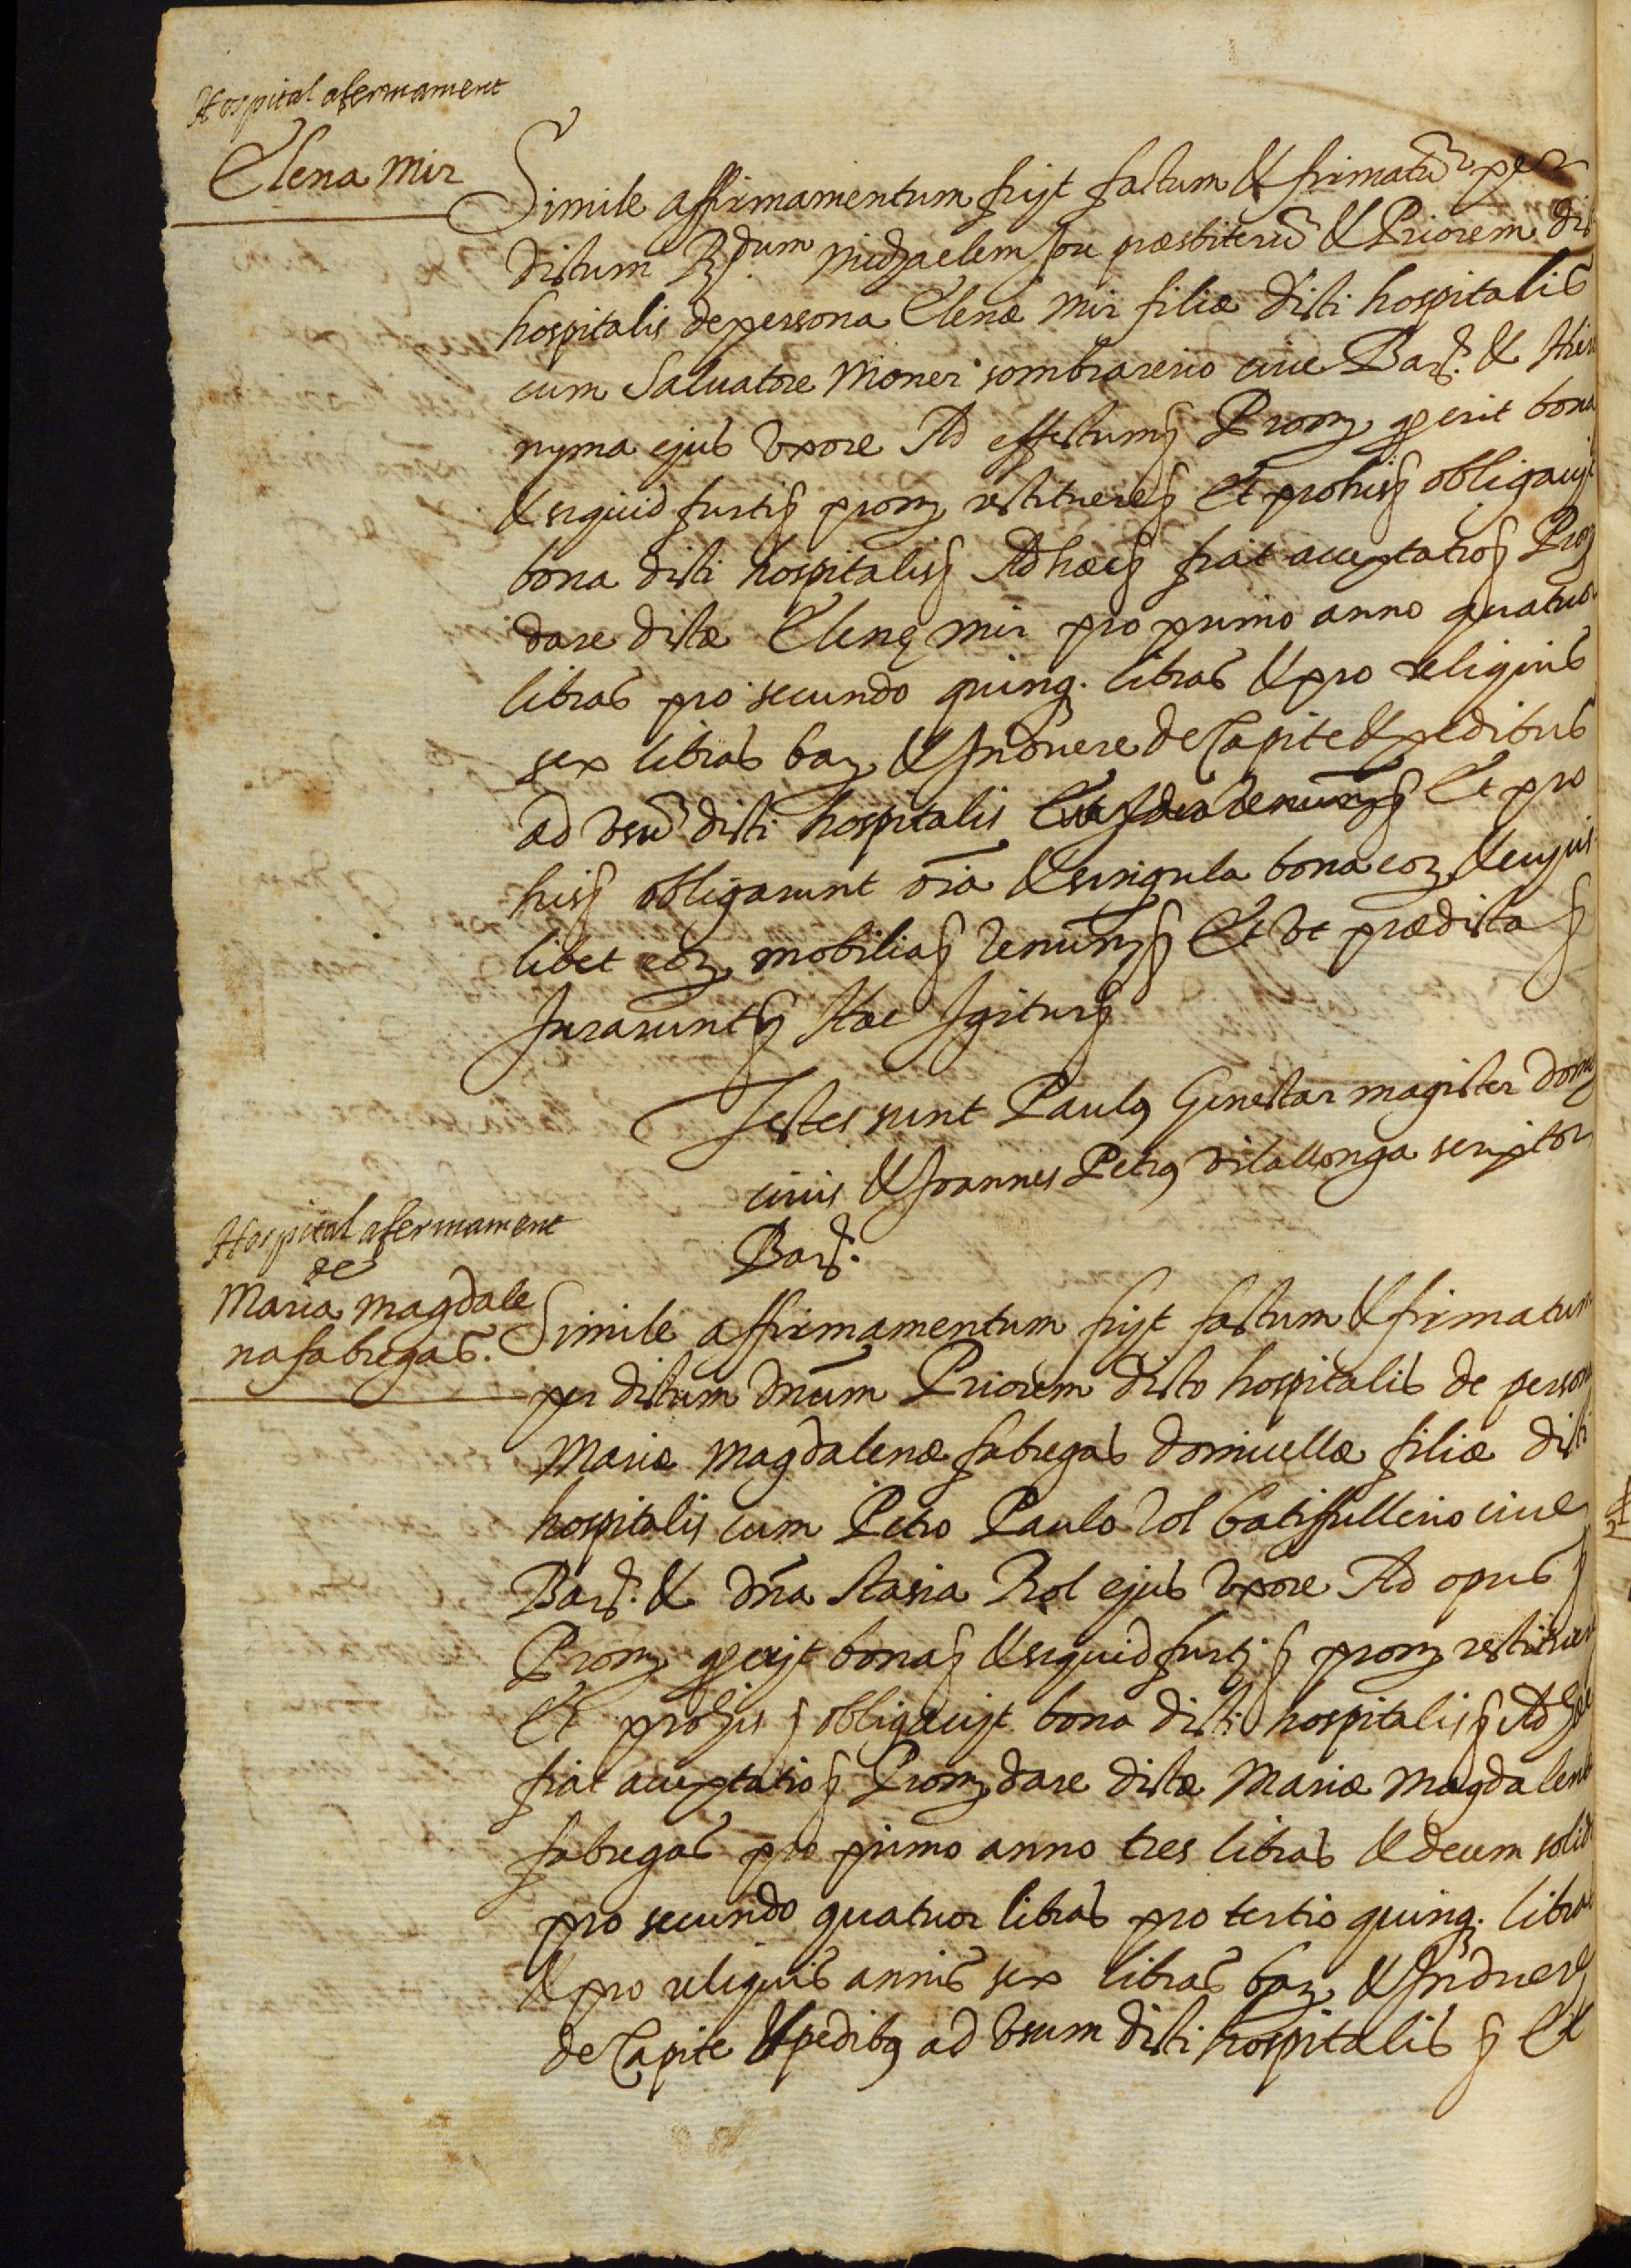 Hospital afermament
Elena Mir
Simile affirmamentum fuit factum & firmatũ per
dictum R.dum Michaelem Jou præsbiterũ & Priorem dicti
hospitalis de persona Elenæ Mir filiæ dicti hospitalis
cum Saluatore Moner sombrarerio ciue Barȝ. & Hiero
nyma ejus vxore Ad effectumȝ Promȝ ꝙ erit bona
& siquid furtiȝ promȝ restituereȝ Et pro hisȝ obligauit
bona dicti hospitalisȝ Ad hæcȝ fiat acceptatioȝ Promȝ
dare dictæ Elenę Mir pro primo anno quatuor
libras pro secundo quinq. libras & pro reliquis
sex libras barȝ & Induere de Capite & pedibus
ad vsũ dicti hospitalis Et pro
hisȝ obligarunt oĩa & singula bona eorȝ & cujus
libet eorȝ mobiliaȝ Renunȝȝ Et vt prædictaȝ
Juraruntȝ Hæc Igiturȝ
Testes sunt Paulꝰ Ginestar magister domꝰ
ciuis & Joannes Petrꝰ vilallonga scriptor
Barȝ.
Hospital afermament
de
Maria Magdale
na fabregas.
Simile affirmamentum fuit factum & firmatum
per dictum Dnũm Priorem dicto hospitalis de persona
Mariæ Magdalenæ fabregas domicellæ filiæ dicti
hospitalis cum Petro Paulo Rol batiffullerio ciue
Barȝ. & Dña Stasia Rol ejus vxore Ad opusȝ
Promȝ ꝙ erit bonaȝ & siquid furtiȝ promȝ restituere
Et pro hisȝ obligauit bona dicti hospitalisȝ Ad hæc
fiat acceptatioȝ Promȝ dare dictæ Mariæ Magdalenæ
fabregas pro primo anno tres libras & decem solidos
pro secundo quatuor libras pro tertio quinq. libras
& pro reliquis annis sex libras barȝ & Induere
de Capite & pedibꝰ ad vsum dicti hospitalisȝ Et